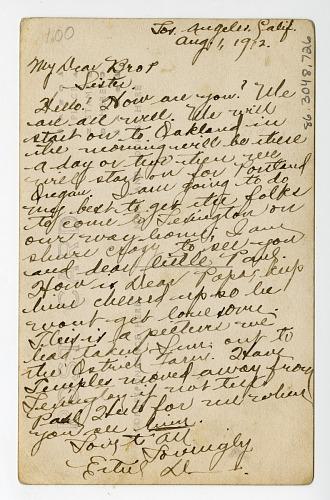 1.00
Los Angeles, Calif.
Aug, 1, 1912.
86.3048.726
My Dear Bro &
Sister
Hello! How are you? We
are all well. We will
start on to Oakland in
the morning will be there
a day or two then we
will start on for Portland
Oregon. I am going to do
my best to get the folks
to come to Lexington on
our way home, I am
shure crazy to see you
and dear little Paul.
How is Dear Papa, keep
him cheered up so he
wont get lonesome.
This is a pecture we
had taken Sun. out to
the Ostrich Farm. Have
Temples moved away from
Lexington if not tell
Paul Hello for me when
you see
Love to all
Lovingly